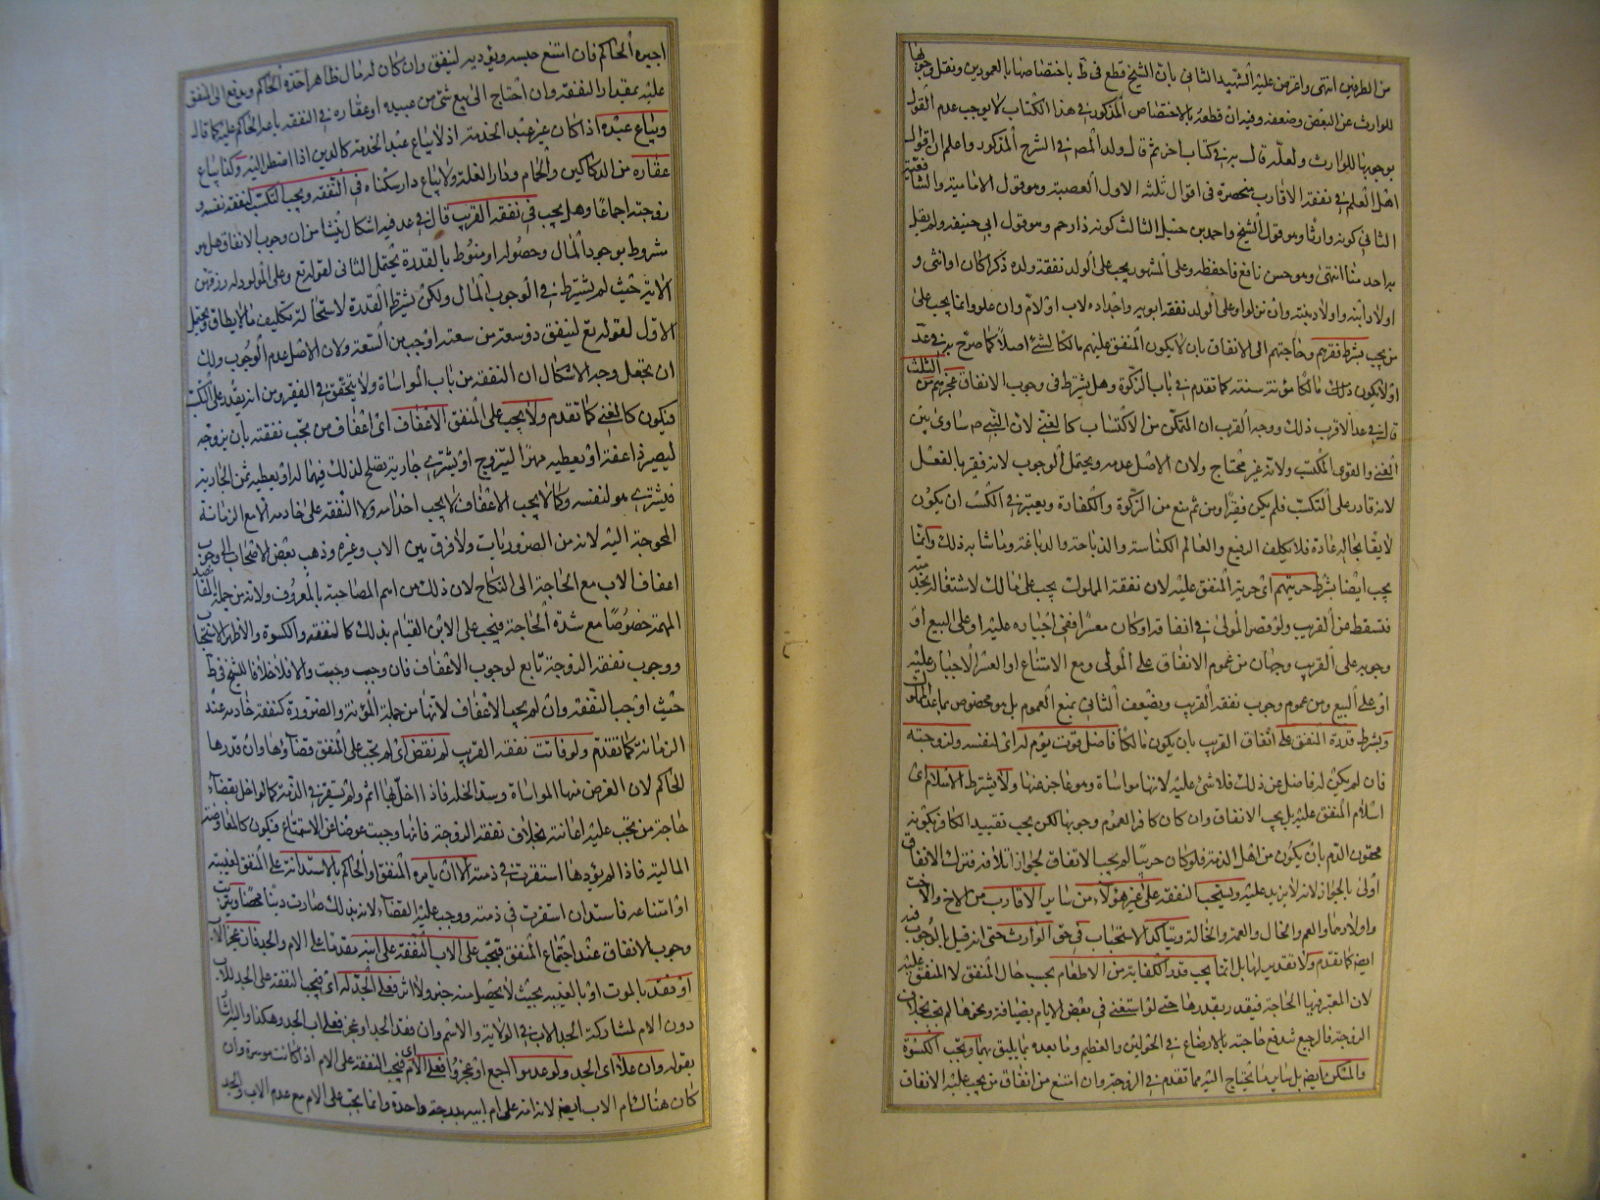 من الطرفين انتهى واعترض عليه الشهيد الثاني بان الشيخ قطع في ط باختصاصها بالعمودين ونقل وجوبها
للوارث عن البعض وضعفه وفيه ان قطعه بالاختصاص المذكور في هذا الكتاب لا يوجب عدم القول
بوجوبها للوارث ولعله قال به في كتاب اخر ثم قال ولد المصـ في الشرح المذكور واعلم ان اقوال
اهل العلم في نفقة الاقارب منحصرة في اقوال ثلثه الاول العصبية وهو قول الامامية والشافعية
الثاني كونه وارثا وهو قول الشيخ واحمد بن حنبل الثالث كونه ذا رحم وهو قول ابي حنيفه ولم يقل
به احد منا انتهى وهو حسن نافع فاحفظه وعلى المشهور يجب على الوالد نفقة ولده ذكرا كان او انثى و
اولاد ابنه واولاد بنته وان نزلوا وعلى الولد نفقة ابويه واجداده لاب او لام وان علوا وانما يجب على
من يجب بشرط فقرهم وحاجتهم الى الانفاق بان لا يكون المنفق عليهم مالكا لشئ اصلا كما صرح به في عد
او لا يكون ذلك مالكا مؤنة سنته كما تقدم في باب الزكوة وهل يشترط في وجوب الانفاق عجزهم من التكسب
قال في عد الاقرب ذلك ووجه القرب ان التمكن من الاكتساب كالغنى لان النبي ص ساوى بين
الغني والقوي المكتسب ولانه غير محتاج ولان الاصل عدمه ويحتمل الوجوب لانه فقير بالفعل
لانه قادر على التكسب فلم يكن فقيرا ومن ثم منع من الزكوة والكفارة ويعتبر في الكسب ان يكون
لايقا بحاله عادة فلا يكلف الرفيع والعالم الكناسة والذباحة والدباغة وما شابه ذلك وانما
يجب ايضا بشرط حريتهم اي حرية المنفق عليه لان نفقة المملوك يجب على مالك لاشتغاله بخدمته
فتسقط عن القريب ولو قصر المولى في انفاقه او كان معسرا ففي اجباره عليه او على البيع او
وجوبه على القريب وجهان من عموم الانفاق على المولى ومع الامتناع او العسر الاجبار عليه
او على البيع ومن عموم وجوب نفقة القريب ويضعف الثاني بمنع العموم بل هو مخصوص بما عدا المملوك
ويشرط قدرة المنفق على انفاق القريب بان يكون مالكا فاضل قوت يوم له اي لنفسه ولزوجته
فان لم يكن له فاضل عن ذلك فلا شئ عليه لانها مواساة وهو عاجز عنها ولا يشترط الاسلام اي
اسلام المنفق عليه بل يجب الانفاق وان كان كافرا لعموم وجوبها لكن يجب تقييد الكافر بكونه
محقون الدم بان يكون من اهل الذمة فلو كان حربيا لم يجب الانفاق لجواز اتلافه فترك الانفاق
اولى بالجواز لانه لا يزيد عليه ويستحب النفقة على غير هؤلاء من ساير الاقارب من الاخ والاخت
واولادهما والعم والخال والعمة والخالة ويتاكد الاستحباب في حق الوارث حتى انه قيل بالوجوب فيه
ايضـ كما تقدم ولا تقدير لها بل انما يجب قدر الكفاية من الاطعام يجب حال المنفق لا المنفق عليه
لان المعتبر فيها الحاجة فيقدر بقدرها حتى لو استغنى في بعض الايام بضيافة ونحوها لم يجب بخلاف
الزوجة فالرجيع تدفع حاجته بالارضاع في الحولين والفطيم وما بعده بما يليق بهما ويجب الكسوة
والمسكن ايضـ بل ساير ما يحتاج اليه مما تقدم في الزوجة وان امتنع من انفاق من يجب عليه الانفاق
اجبره الحاكم فان امتنع حبسه ويؤدبه لينفق وان كان له مال ظاهر اخذه الحاكم ويدفع الى المنفق
عليه بمقدار النفقة وان احتاج الى بيع شئ من عبيده او عقاره في النفقه باعه الحاكم عليه كما قال
ويباع عبده اذا كان غير عبد الخدمة اذ لا يباع عبد الخدمة كالدين اذا اضطر اليه وكذا يباع
عقاره من الدكاكين والحمام ودار الغلة ولا يباع دار سكناه في النفقه ويجب التكسب لنفقة نفسه و
زوجته اجماعا وهل يجب في نفقة القريب قال في عد فيه اشكال ينشا من ان وجوب الانفاق هل هو
مشروط بوجود المال وحصوله او منوط بالقدرة يحتمل الثاني لقوله تع وعلى المولود له رزقهن
الاية حيث لم يشترط في الوجوب المال ولكن يشترط القدرة لاستحالة تكليف ما لا يطاق ويحتمل
الاول لقوله تع لينفق ذو سعة من سعته اوجب من السعة ولان الاصل عدم الوجوب ولك
ان تجعل وجه الاشكال ان النفقه من باب المواساة ولا يتحقق في الفقير ومن انه يقدر على الكسب
فيكون كالغني كما تقدم ولا يجب على المنفق الاعفاف اي اعفاف من يجب نفقته بان يزوجه
ليصير ذا عفة او يعطيه مهرا ليتزوج او يشتري جارية تصلح لذلك فيها له او يعطيه ثمن الجارية
فيشتري هو لنفسه وكما لا يجب الاعفاف لا يجب اخدامه ولا النفقة على خادمه الا مع الزمانة
المحوجة اليه لانه من الضروريات ولا فرق بين الاب وغيره وذهب بعض الاصحاب الى وجوب
اعفاف الاب مع الحاجة الى النكاح لان ذلك من اهم المصاحبة بالمعروف ولانه من جملة المقاصد
المهمة خصوصا مع شدة الحاجة فيجب على الابن القيام بذلك كالنفقه والكسوة والاظهر الاستحباب
ووجوب نفقة الزوجة تابع لوجوب الاعفاف فان وجب وجبت والا فلا خلافا للشيخ في ط
حيث اوجب النفقه وان لم يجب الاعفاف لانها من جملة المؤنة والضرورة كنفقة خادمه عند
الزمانة كما تقدم ولو فاتت نفقة القريب لم تقض اي لم يجب على المنفق قضاؤها وان قدرها
الحاكم لان الغرض منها المواساة وسد الخله فاذا اخل بها اثم ولم يستقر في الذمة كما لو اخل بقضاء
حاجة من يجب عليه اعانته بخلاف نفقة الزوجة فانها وجبت عوضا عن الاستمتاع فيكون كالمعاوضة
المالية فاذا لم يؤدها استقرت في ذمته الا ان يامره المنفق او الحاكم بالاستدانة على المنفق لغيبته
او امتناعه فاستدان استقرت في ذمته ووجب عليه القضاء لانه بذلك صارت دينا محضا ويترتب
وجوب الانفاق عند اجتماع المنفق فيجب على الاب النفقه على ابنه مقدما على الام والجد فان عجز الاب
او فقد بالموت او بالغيبه بحيث لا يحصل منه خبر ولا اثر فعلى الجد له اي فيجب النفقه على الجد للاب
دون الام لمشاركة الجد الاب في الولاية والاسم وان فقد الجد او عجز فعلى اب الجد وهكذا واليه اشار
بقوله وان علا اي الجد ولو عدموا اجمع او عجزوا فعلى الام اي فيجب النفقه على الام اذا كانت موسرة وان
كان هناك ام الاب ايضـ لانه على ام ابيه بدرجة واحدة وانما يجب على الام مع عدم الاب والجد